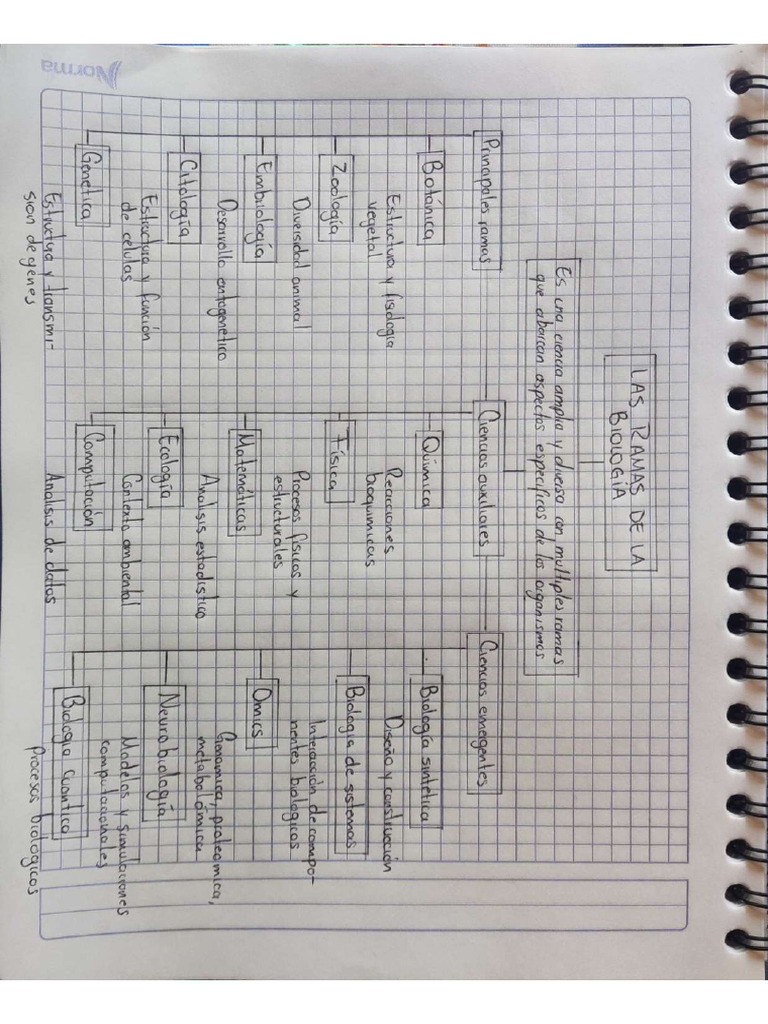 Norma
LAS RAMAS DE LA
BIOLOGIA
Es una ciencia amplia y diversa con multiples ramas
que abarcan aspectos especificos de los organismos
Principales ramas
Botánica
Estructura y fisiología
vegetal
Zoología
Diversidad animal
Embriología
Desarrollo ontogenetico
Citología
Estructura y función
de celulas
Genetica
Estructura y transmi-
sion de genes
Ciencias auxiliares
Química
Reacciones
bioquimicas
Física
Procesos fisicos y
estructurales
Matemáticas
Analisis estadistico
Ecología
Contexto ambiental
Computación
Analisis de datos
Ciencias emergentes
Biología sintética
Diseño y construcción
Biología de sistemas
Interacción de compo-
nentes biologicos
Omics
Genomica, proteomica,
metabolómica
Neurobiología
Modelos y simulaciones
computacionales
Biología Cuantica
Procesos biologicos